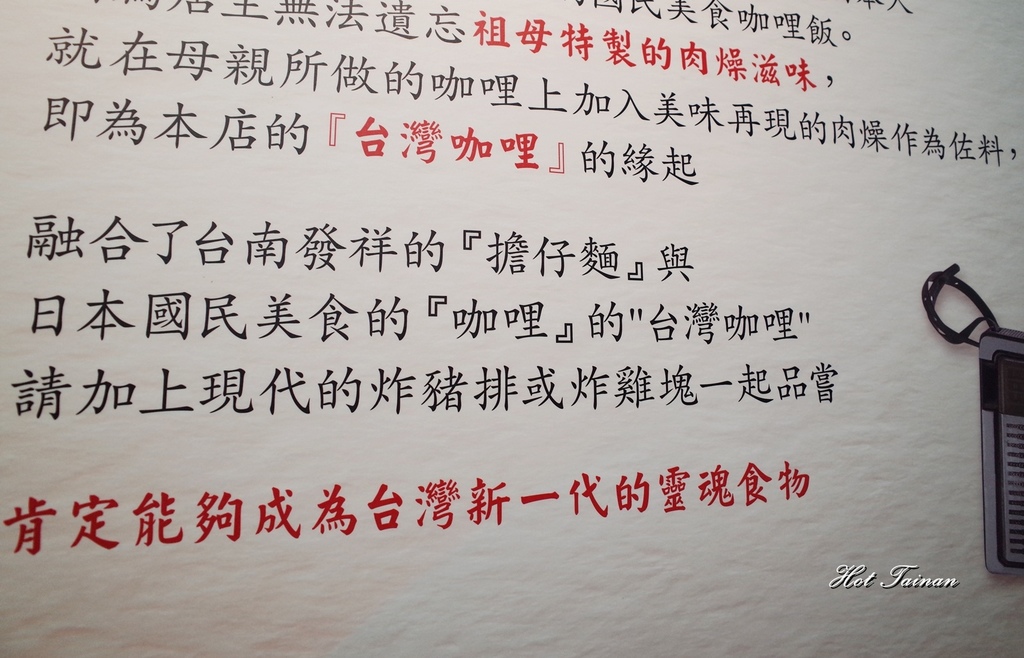 店主無法遺忘祖母特製的肉燥滋味，
國民美食咖哩飯。
就在母親所做的咖哩上加入美味再現的肉燥作為佐料，
即為本店的『台灣咖哩』的緣起
融合了台南發祥的『擔仔麵』與
日本國民美食的『咖哩』的"台灣咖哩"
請加上現代的炸豬排或炸雞塊一起品嘗
肯定能夠成為台灣新一代的靈魂食物
Hot Tainan